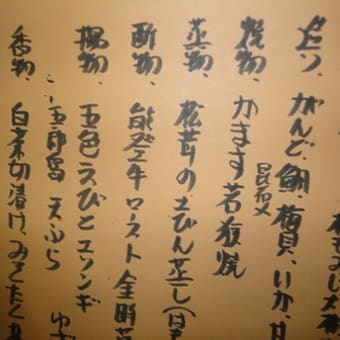 がんど、鯛、梅貝、いか、甘
昆布〆
焼物、かます若狭焼
蒸物、松茸の土びん蒸し(はも
酢物、能登牛ロースト 金時草
揚物、五色えびとエリンギ
五郎島 天ぷら ゆず
香物、白菜切漬け、みそたくあ